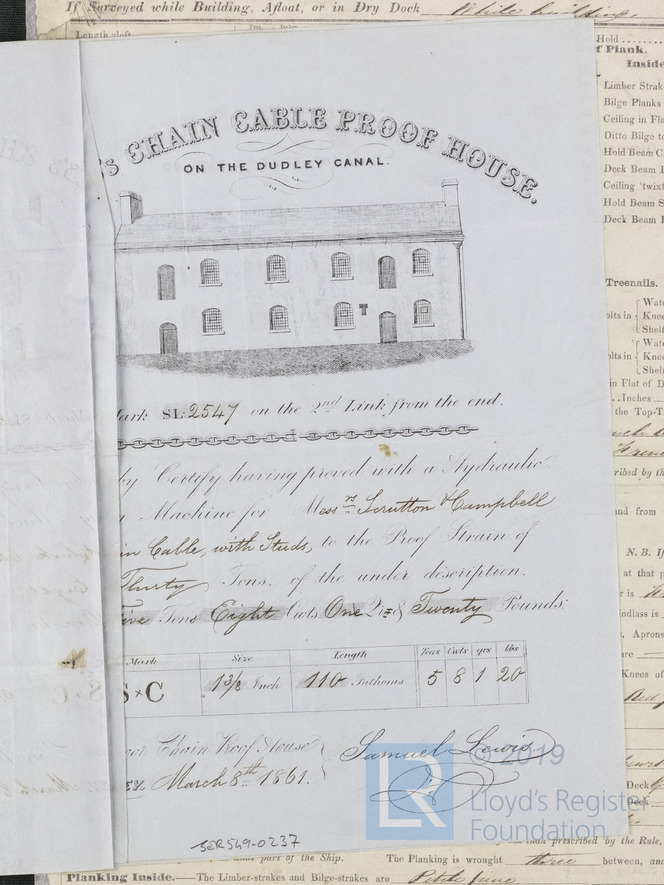 If Surveyed while Building, Afloat, or in Dry Dock While building.
Length aloft
's CHAIN CABLE PROOF HOUSE.
ON THE DUDLEY CANAL.
Mark SL: 2547 on the 2nd Link from the end.
by Certify having proved with a Hydraulic
Machine for Messrs Scrutton & Campbell
in Cable, with Studs, to the Proof Strain of
Thirty Tons, of the under description.
Five Tons Eight Cwts One Qrs & Twenty Pounds:
Mark Size Length Tons Cwts qrs lbs
S×C 1 3/8 Inch 110 Fathoms 5 8 1 20
Chain Proof House
EY. March 8th 1861.
Samuel Lewis
SER549-0237
Hold
f Plank.
Inside
Limber Strak
Bilge Planks
Ceiling in Fla
Ditto Bilge to
Hold Beam C
Deck Beam
Ceiling 'twixt
Hold Beam S
Deck Beam
Treenails.
olts in { Wate
Knee
Shelf
olts in { Wate
Knee
Shelf
in Flat of D
Inches
the Top-T
ribed by the
and from
N.B. If
at that p
is
indlass is
, Apron
are
Knees of
Deck
Deck
than prescribed by the Rule,
part of the Ship.
The Planking is wrought three between, and
Planking Inside.— The Limber-strakes and Bilge-strakes are Pitch pine
© 2019
LR
Lloyd's Register
Foundation